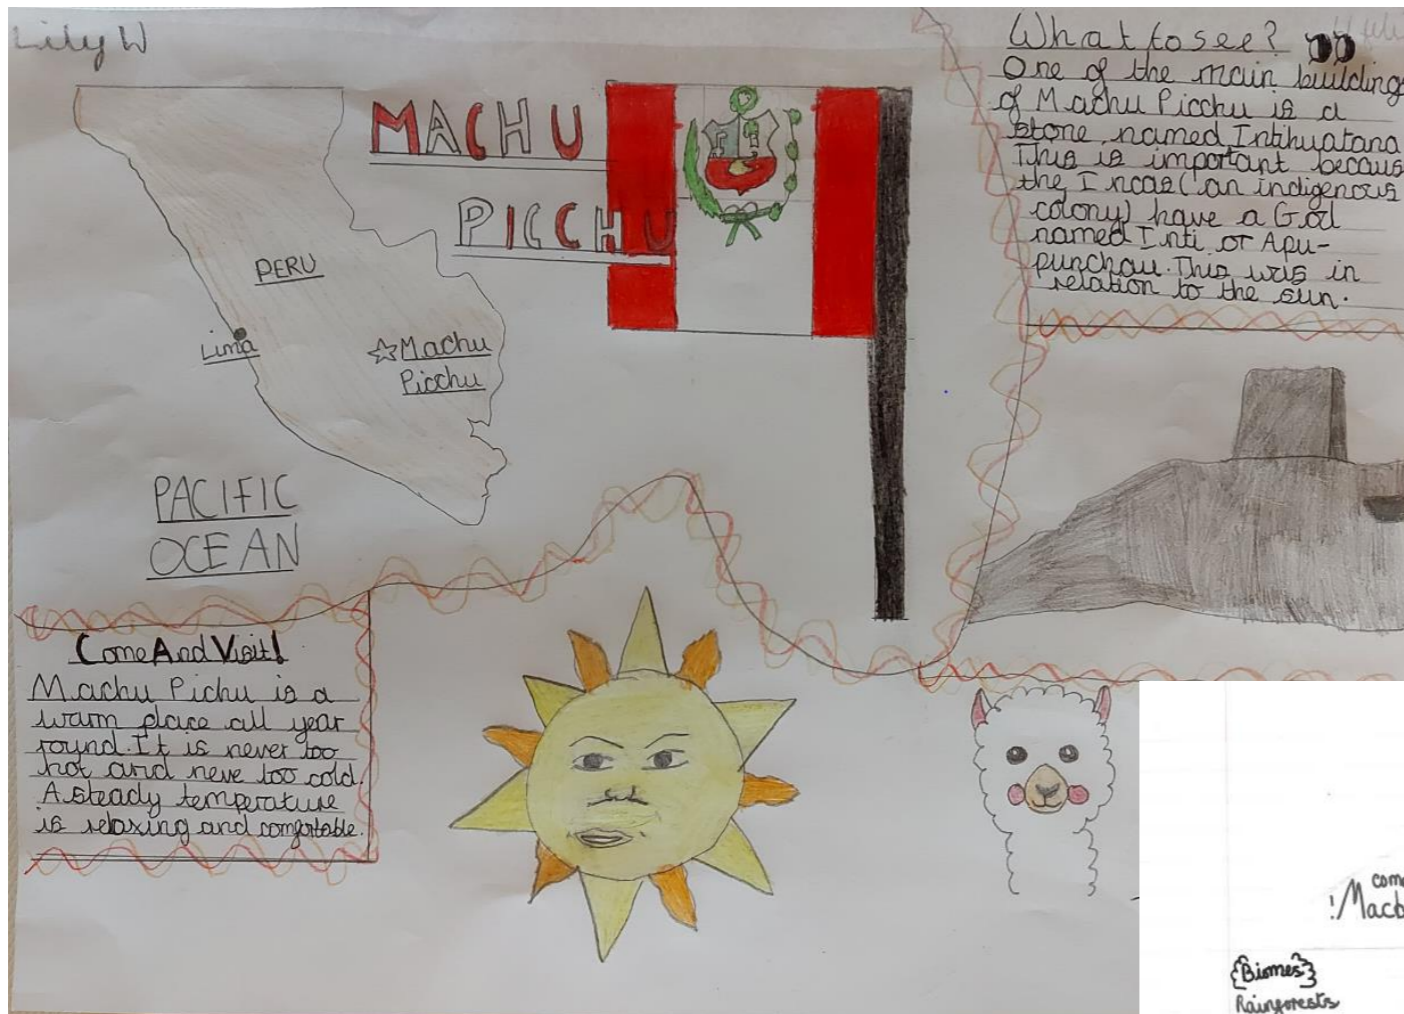 Lily W
MACHU
PICCHU
PERU
Lima
Machu
Picchu
PACIFIC
OCEAN
What to see?
One of the main buildings
of Machu Picchu is a
stone named Intihuatana
This is important becaus
the Incas (an indigenous
colony) have a God
named Inti or Apu-
punchau. This was in
relation to the sun.
Come And Visit!
Machu Pichu is a
warm place all year
round. It is never too
hot and neve too cold.
A steady temperature
is relaxing and comfortable.
{Biomes}
Rainforests